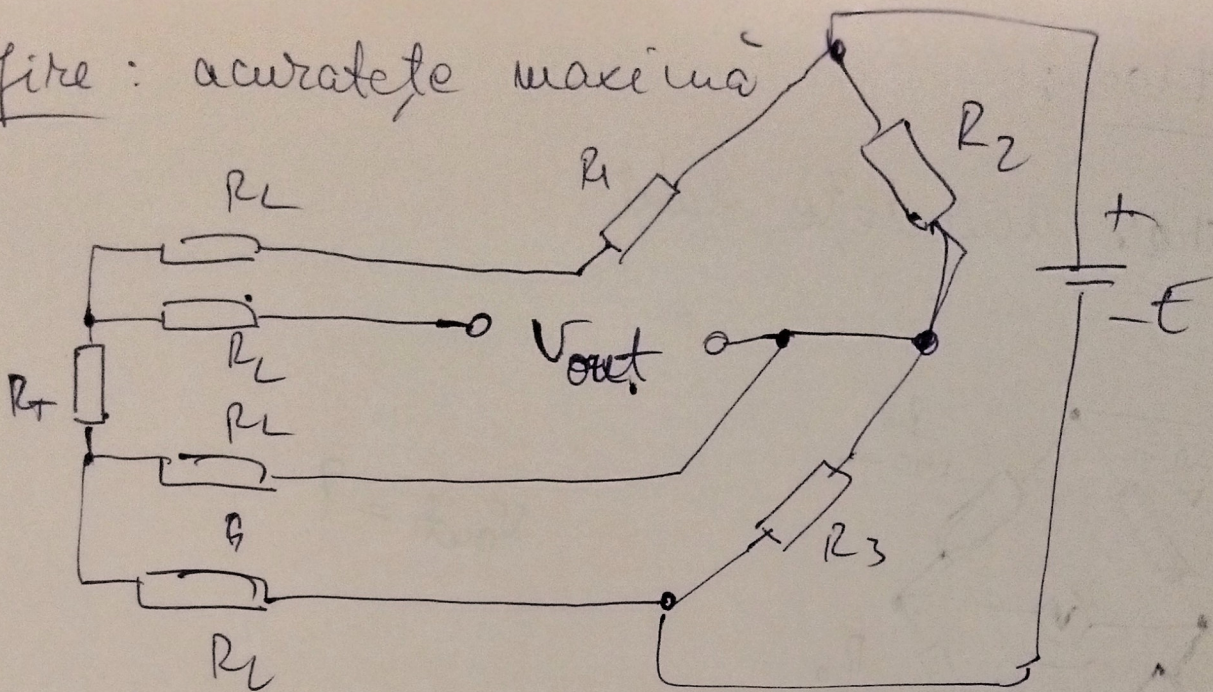 fire : acuratețe maximă
R2
R1
RL
+
RL
Vout
-E
RT
RL
R3
RL